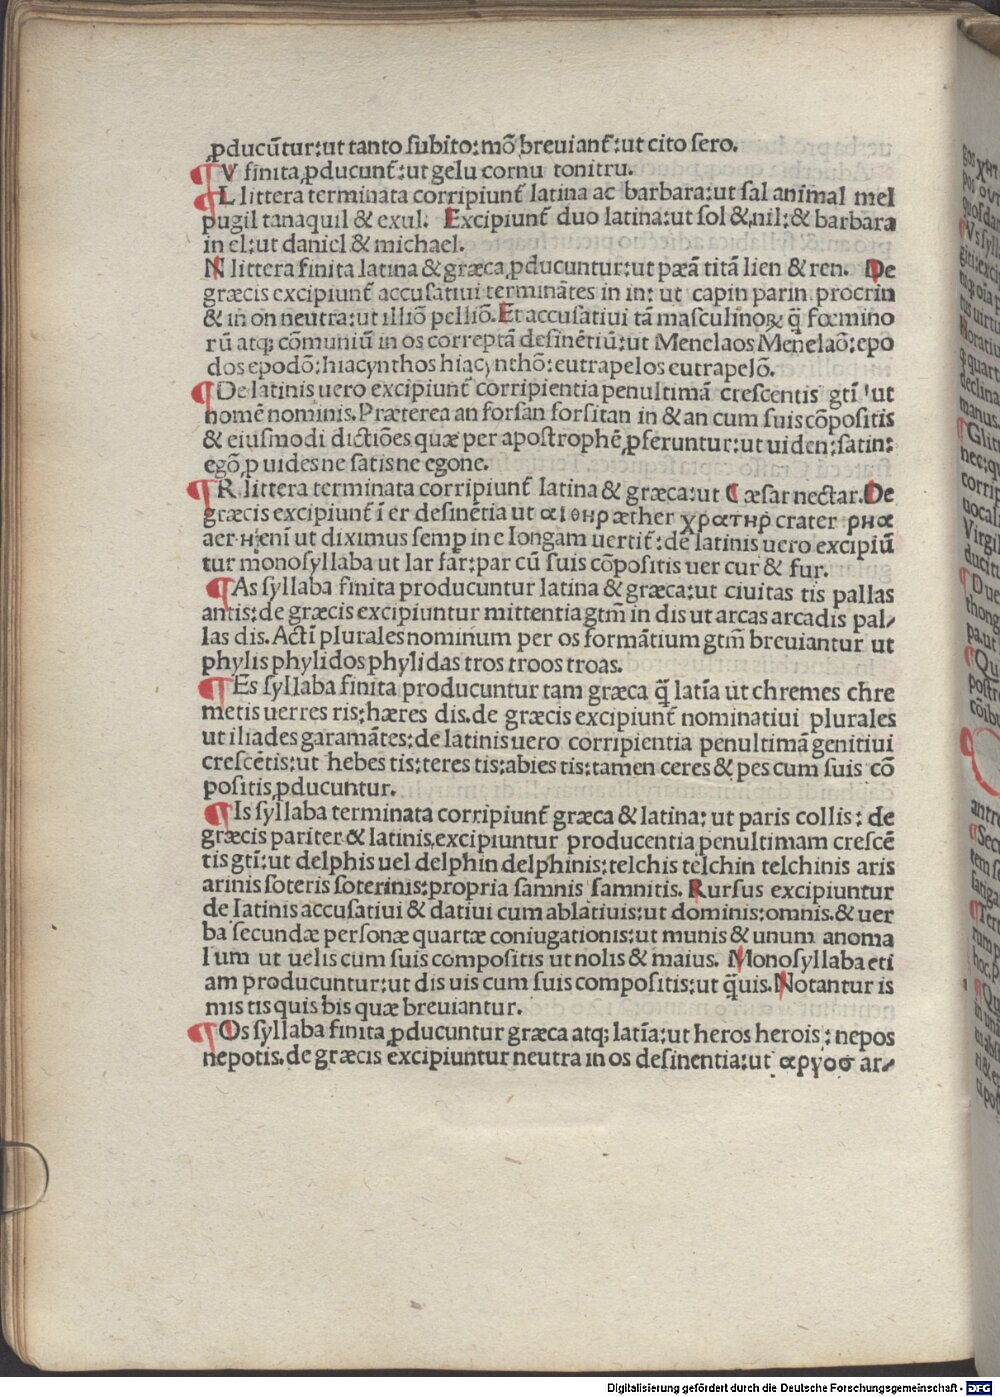 ꝓducūtur:ut tanto ſubito:mō breuiant᷑:ut cito ſero.
¶ V finita ꝓducunt᷑:ut gelu cornu tonitru.
¶ L littera terminata corripiunt᷑ latina ac barbara:ut ſal animal mel
pugil tanaquil & exul. Excipiunt᷑ duo latina:ut ſol & nil:& barbara
in el:ut daniel & michael.
N littera finita latina & græca ꝓducuntur:ut pæā titā lien & ren. De
græcis excipiunt᷑ accuſatiui terminātes in in: ut capin parin procrin
& in on neutra:ut illiō pelliō. Et accuſatiui tā maſculinoꝝ q̄ fœmino
rū atqꝫ cōmuniū in os correptā deſinētiū:ut Menelaos Menelaō:epo
dos epodō:hiacynthos hiacynthō:eutrapelos eutrapelō.
¶ De latinis uero excipiunt᷑ corripientia penultimā creſcentis gtī ut
nomē nominis. Præterea an forſan forſitan in & an cum ſuis cōpoſitis
& eiuſmodi dictiōes quæ per apoſtrophē ꝓferuntur:ut uiden:ſatin:
egō ꝓ uidesne ſatisne egone.
¶ R littera terminata corripiunt᷑ latina & græca:ut Cæſar nectar. De
græcis excipiunt᷑ ī er deſinētia ut αιθηρ æther χρατηρ crater
aer η enī ut diximus ſemꝑ in e longam uertit᷑: de latinis uero excipiū
tur monoſyllaba ut lar far:par cū ſuis cōpoſitis uer cur & fur.
¶ As ſyllaba finita producuntur latina & græca:ut ciuitas tis pallas
antis:de græcis excipiuntur mittentia gtm̄ in dis ut arcas arcadis pal⸗
las dis. Actī plurales nominum per os formātium gtm̄ breuiantur ut
phylis phylidos phylidas tros troos troas.
¶ Es ſyllaba finita producuntur tam græca q̄ latīa ut chremes chre
metis uerres ris:hæres dis.de græcis excipiunt᷑ nominatiui plurales
ut iliades garamātes:de latinis uero corripientia penultimā genitiui
creſcētis:ut hebes tis:teres tis:abies tis:tamen ceres & pes cum ſuis cō
poſitis ꝓducuntur.
¶ Is ſyllaba terminata corripiunt᷑ græca & latina: ut paris collis: de
græcis pariter & latinis excipiuntur producentia penultimam creſcē
tis gtī:ut delphis uel delphin delphinis:telchis telchin telchinis aris
arinis ſoteris ſoterinis:propria ſamnis ſamnitis. Rurſus excipiuntur
de latinis accuſatiui & datiui cum ablatiuis:ut dominis:omnis.& uer
ba ſecundæ perſonæ quartæ coniugationis:ut munis & unum anoma
lum ut uelis cum ſuis compoſitis ut nolis & maius. Monoſyllaba eti
am producuntur:ut dis uis cum ſuis compoſitis:ut q̄uis. Notantur is
mis tis quis bis quæ breuiantur.
¶ Os ſyllaba finita ꝓducuntur græca atqꝫ latīa:ut heros herois: nepos
nepotis.de græcis excipiuntur neutra in os deſinentia:ut αργοσ ar⸗
Digitalisierung gefördert durch die Deutsche Forschungsgemeinschaft - DFG